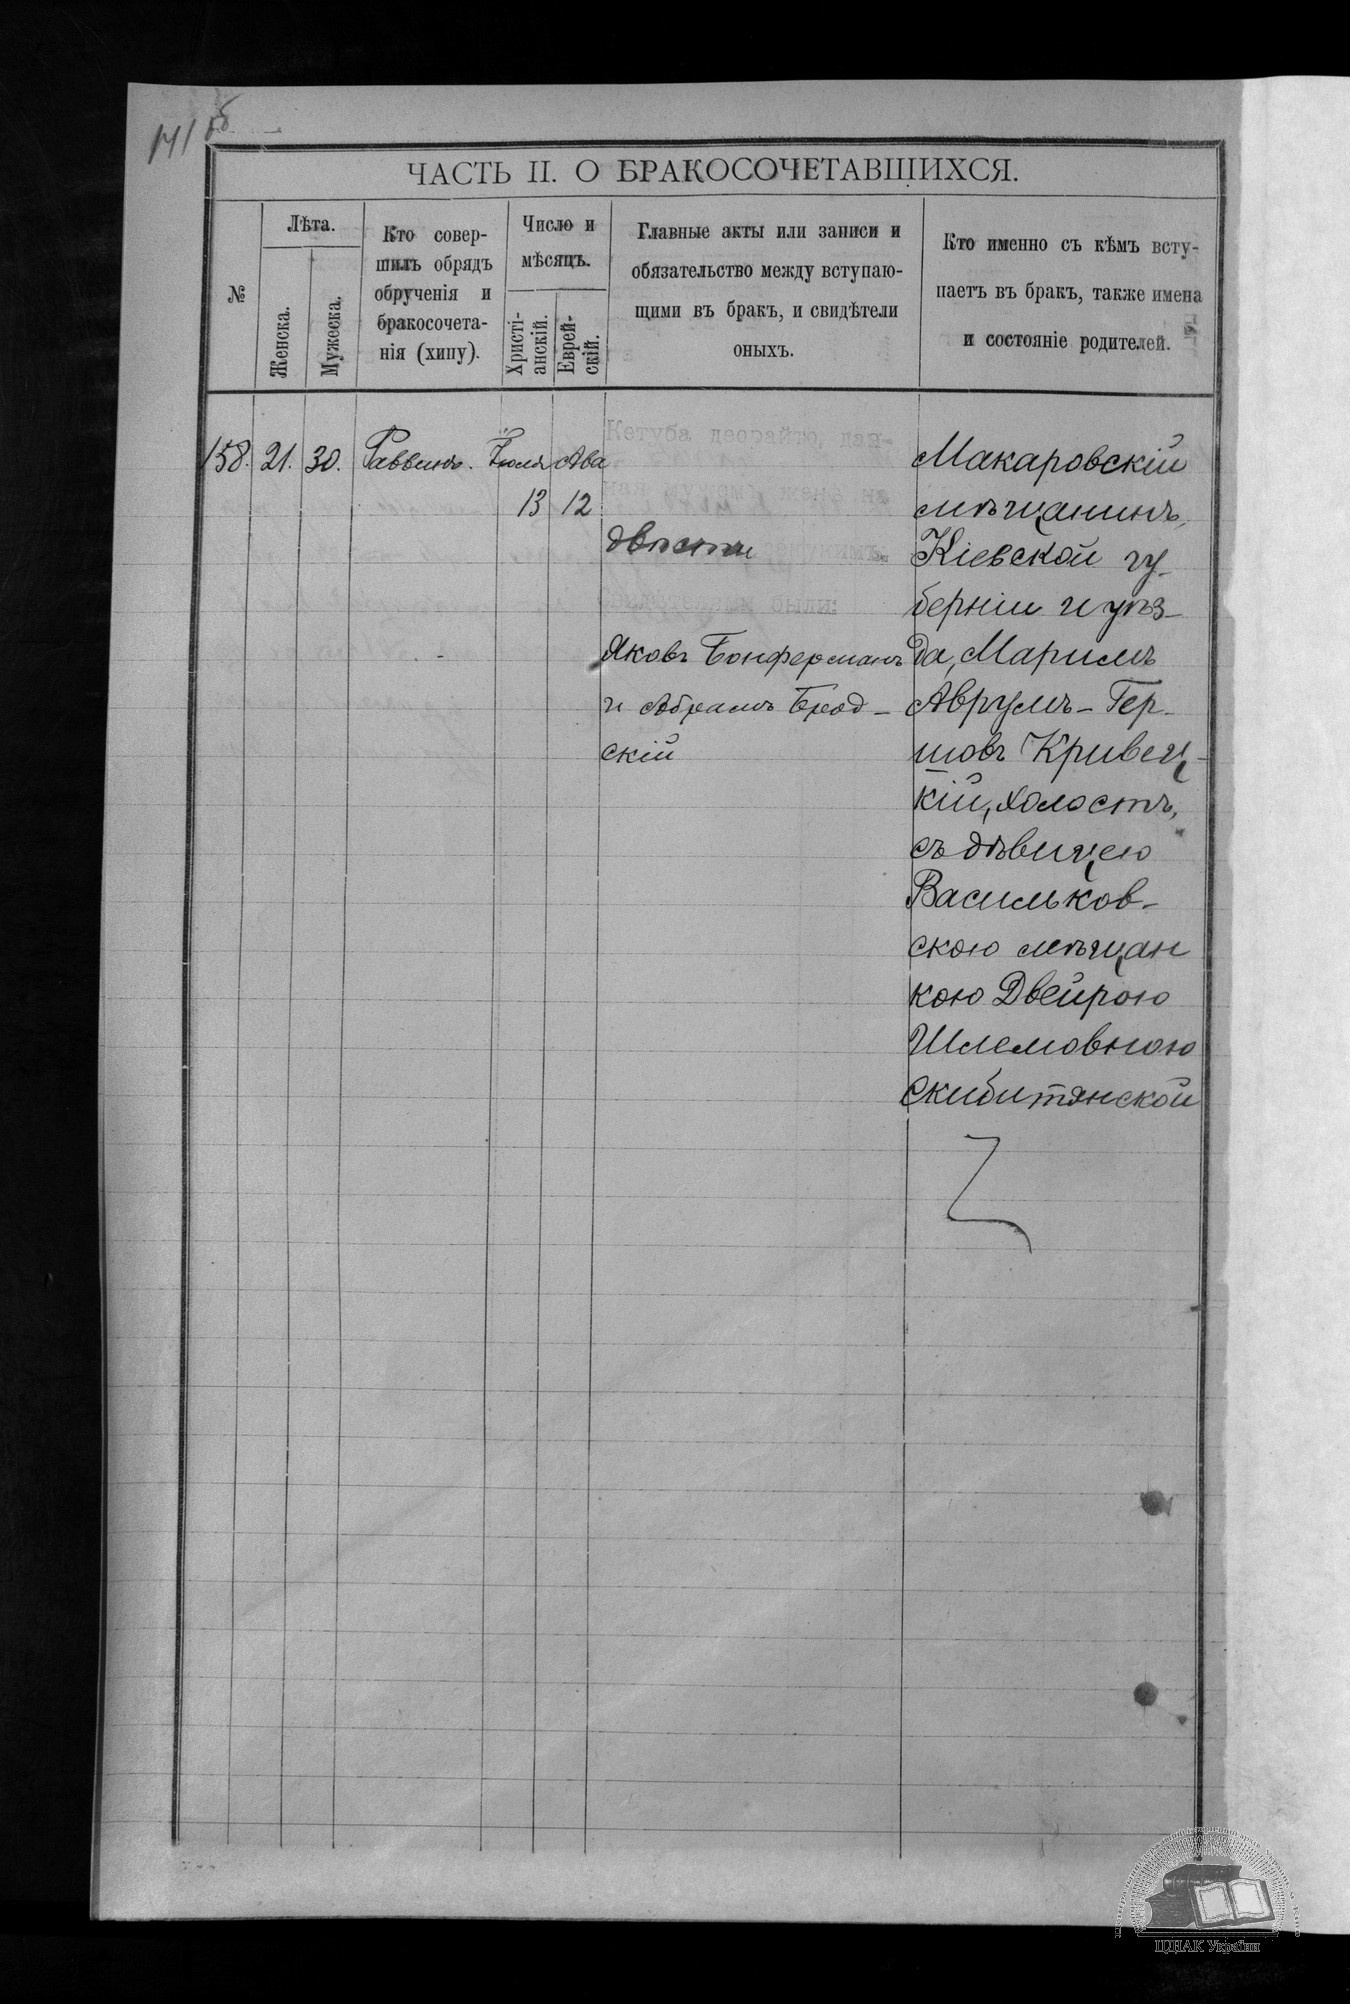 ЧАСТЬ II. О БРАКОСОЧЕТАВШИХСЯ.
№
Лѣта.
Женска.
Мужеска.
Кто совер-
шилъ обрядъ
обрученія и
бракосочета-
нія (хипу).
Число и
мѣсяцъ.
Христі-
анскій.
Еврей-
скій.
Главные акты или записи и
обязательство между вступаю-
щими въ бракъ, и свидѣтели
оныхъ.
Кто именно съ кѣмъ всту-
паетъ въ бракъ, также имена
и состояніе родителей.
158. 21. 30. Раввинъ. Іюля Ава
13 12
Кетуба деорайто, дан-
двѣсти
Свидѣтелями были:
Яковъ Бонферманъ
и Абрамъ Брод-
скій
Макаровскій
мѣщанинъ,
Кіевской гу-
берніи и уѣз-
да, Маримъ
Аврумъ-Гер-
шовъ Кривец-
кій, холостъ,
съ дѣвицею
Васильков-
скою мѣщан
кою Двейрою
Шлемовною
Скибитянской
ЦДІАК України